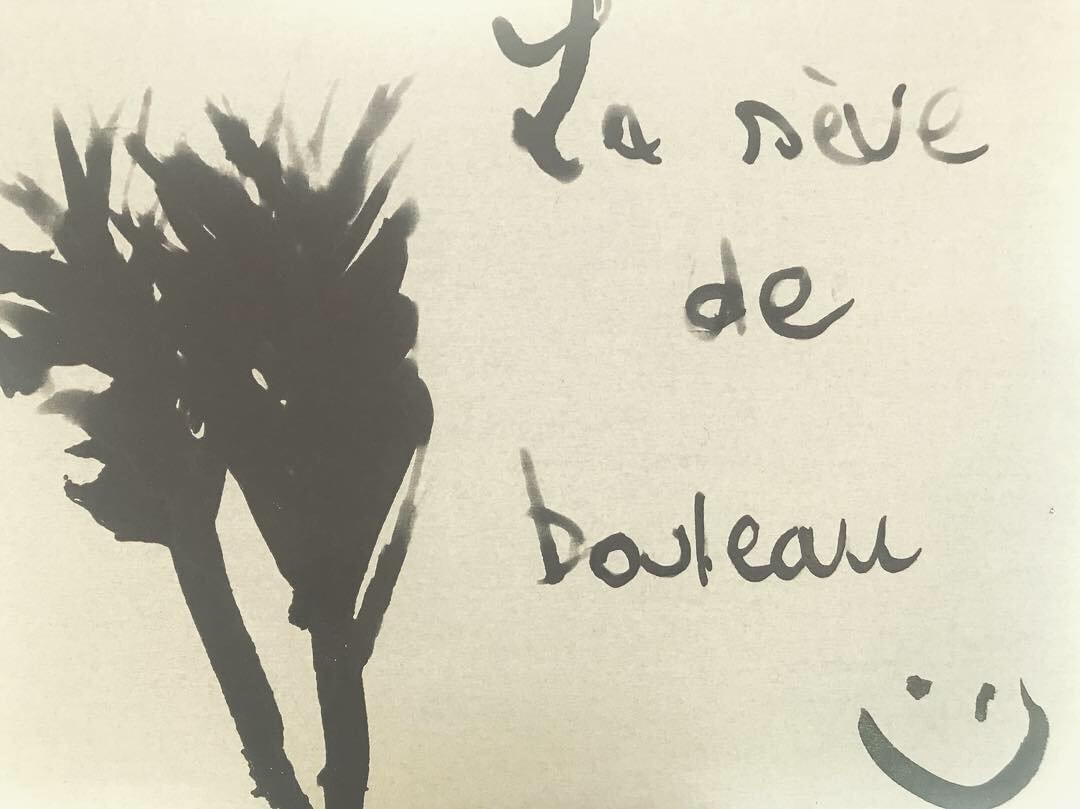 La sève
de
bouleau